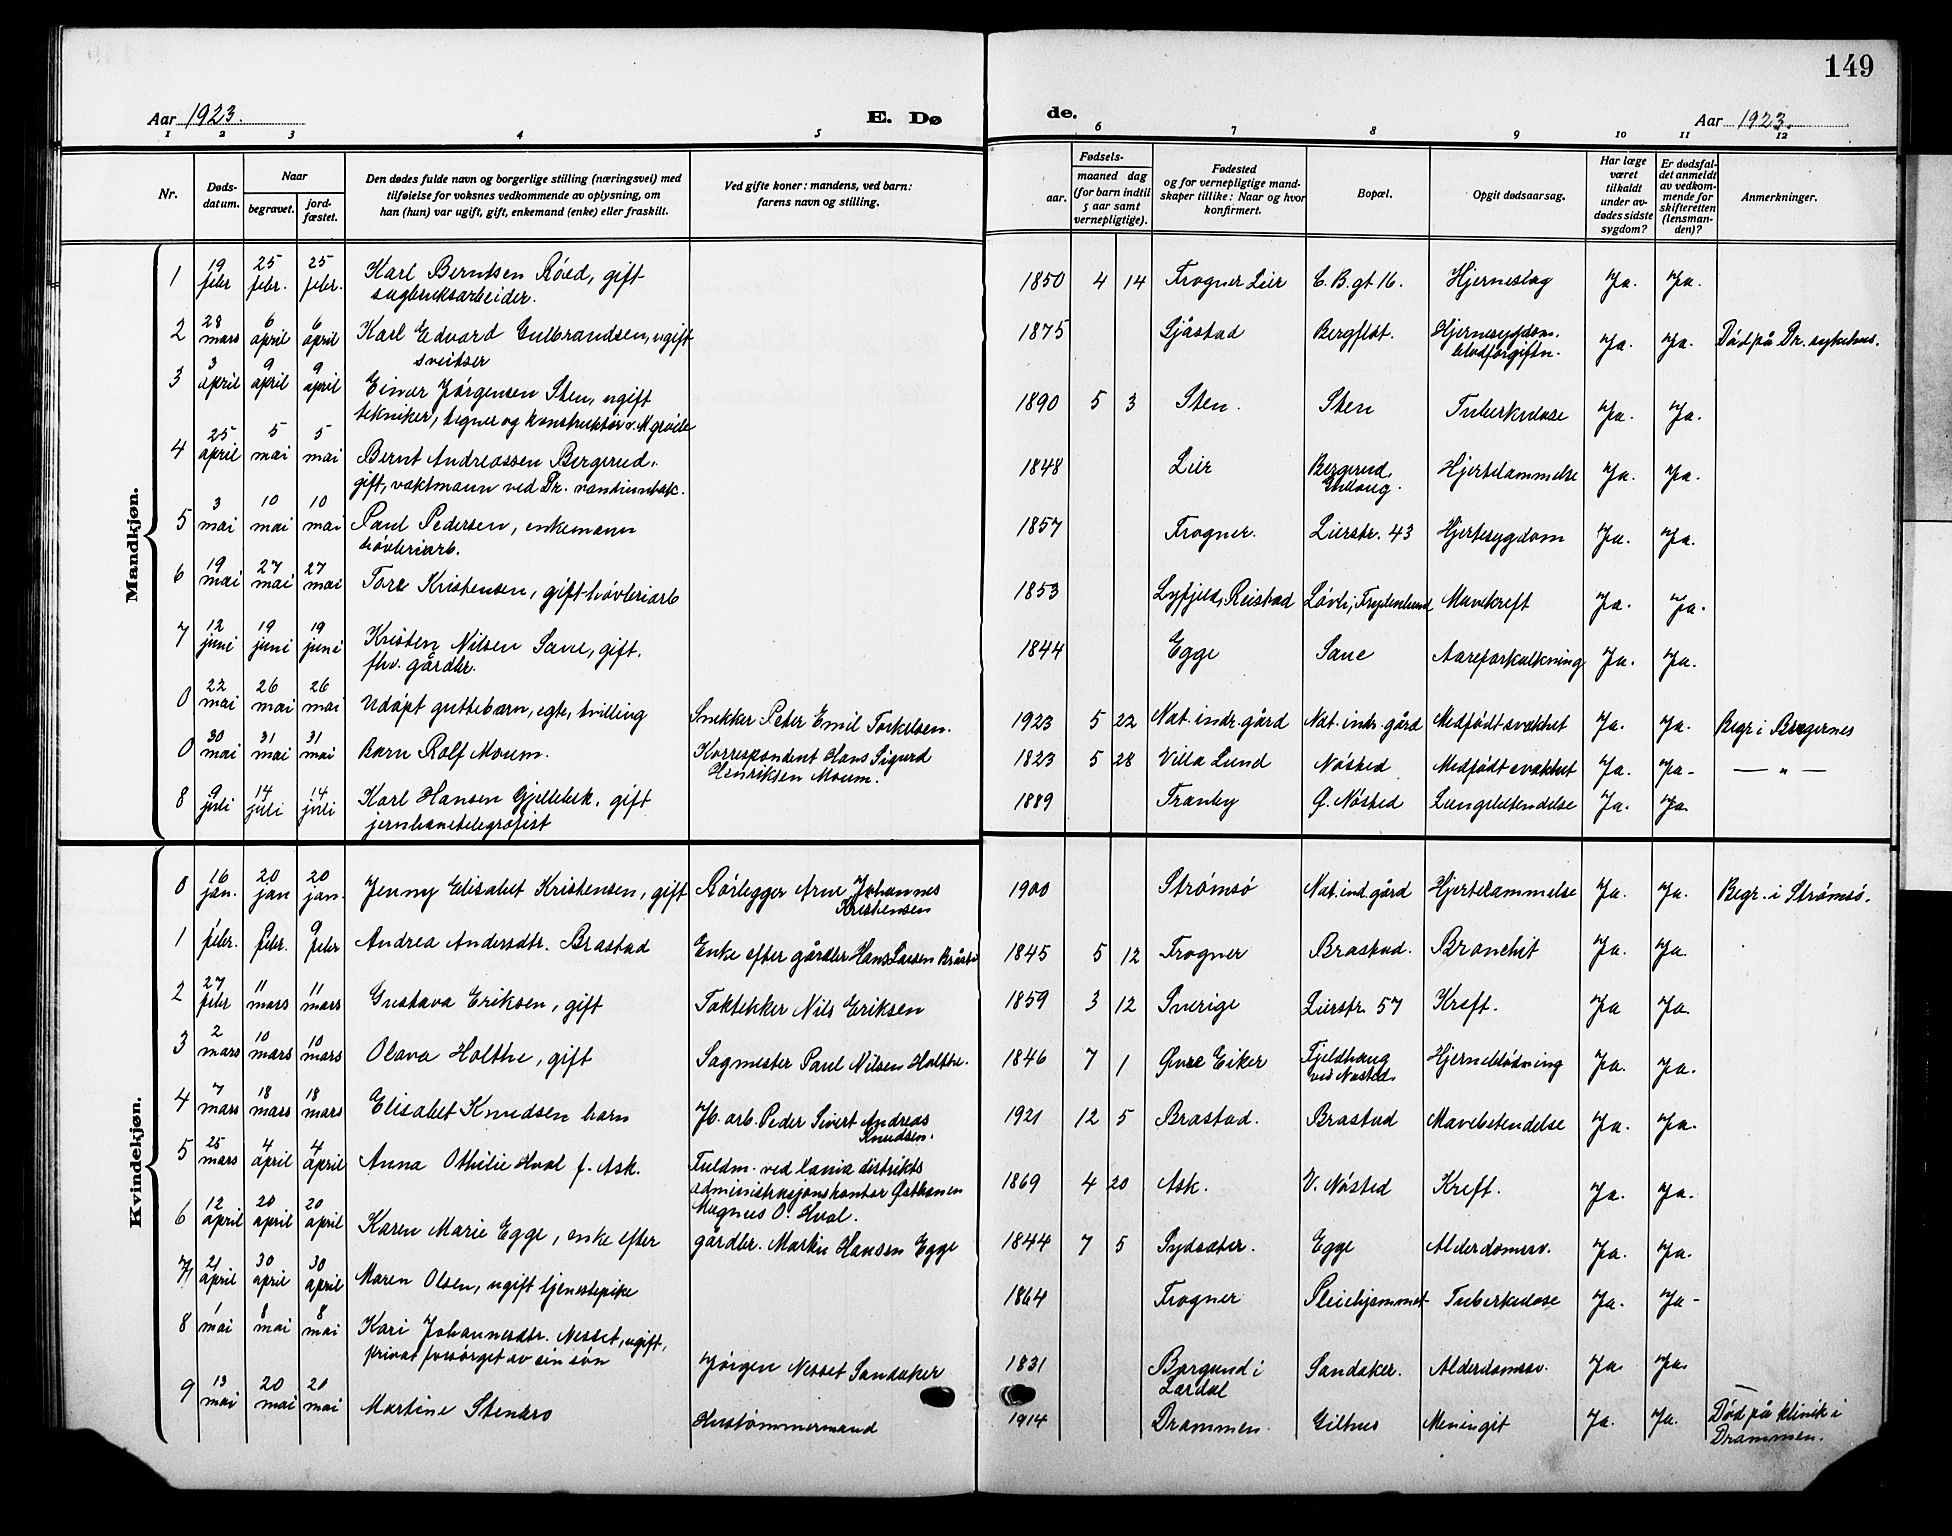 149
Aar 1923.
E. Dø
de.
Aar 1923.
1 2 3 4 5 6 7 8 9 10 11 12
Nr.
Døds-
datum.
Naar
begravet.
jord-
fæstet.
Den dødes fulde navn og borgerlige stilling (næringsvei) med
tilføielse for voksnes vedkommende av oplysning, om
han (hun) var ugift, gift, enkemand (enke) eller fraskilt.
Ved gifte koner: mandens, ved barn:
farens navn og stilling.
Fødsels-
aar.
maaned dag
(for barn indtil
5 aar samt
vernepligtige).
Fødested
og for vernepligtige mand-
skaper tillike: Naar og hvor
konfirmert.
Bopæl.
Opgit dødsaarsag.
Har læge
været
tilkaldt
under av-
dødes sidste
sygdom?
Er dødsfal-
det anmeldt
av vedkom-
mende for
skifteretten
(lensman-
den)?
Anmerkninger.
Mandkjøn.
1 19 febr 25 febr. 25 febr. Karl Berntsen Röed, gift 1850 4 14 Frogner Lier C. B. gt 16. Hjerneslag Ja. Ja.
sagbruksarbeider.
2 28 mars 6 april 6 april Karl Edvard Gulbrandsen, ugift 1875 Sjåstad Bergflot. Hjernesygdom. Ja. Ja. Död på Dr. sykehus.
sveitser blodforgiftn.
3 3 april 9 april 9 april Einar Jörgensen Sten, ugift 1890 5 3 Sten. Sten Tuberkulose Ja. Ja.
tekniker, tegner og konstruktör v.
4 25 april 5 mai 5 mai Bernt Andreassen Bergerud. 1848 Lier Bergerud, Hjertelammelse Ja. Ja.
gift, vaktmann ved Dr. Gullaug.
5 3 mai 10 mai 10 mai Paul Pedersen, enkemann 1857 Frogner. Lierstr. 43 Hjertesygdom Ja. Ja.
hövleriarb.
6 19 mai 27 mai 27 mai Tore Kristensen, gift hövleriarb 1853 Reistad Lövli, Frydenlund Mavekreft Ja. Ja.
7 12 juni 19 juni 19 juni Kristen Nilsen Saue, gift. 1844 Egge Saue Aareforkalkning Ja. Ja.
fhv. gårdbr.
0 22 mai 26 mai 26 mai Udöpt guttebarn, egte, tvilling Snekker Peter Emil Torkelsen. 1923 5 22 Nat. indr. gård Nat. indr. gård Medfödt svakhet Ja. Ja. Begr i Bragernes
0 30 mai 31 mai 31 mai Barn Rolf Moum. Korrespondent Hans Sigurd 1823 5 28 Villa Lund Nösted Medfödt svakhet Ja. Ja - — " —
Henriksen Moum.
8 9 juli 14 juli 14 juli Karl Hansen Gjellebek, gift 1889 Tranby G. Nösted Lungebetendelse Ja. Ja.
jernbanetelegrafist
Kvindekjøn.
0 16 jan. 20 jan 20 jan. Jenny Elisabet Kristensen, gift Rörlegger Arne Johannes 1900 Strømsö Nat. ind. gård Hjertelammelse Ja. Ja. Begr. i Strømsö.
Kristensen
1 1 febr. 9 febr. 9 febr Andrea Andersdtr. Brastad Enke efter gårdbr Hans Larsen 1845 5 12 Frogner Brastad. Bronchit Ja. Ja.
2 27 febr 11 mars 11 mars Gustava Eriksen, gift Taktekker Nils Eriksen 1859 3 12 Sverige Lierstr. 57 Kreft. Ja Ja.
3 2 mars 10 mars 10 mars Olava Holthe, gift Sagmester Paul Nilsen Holthe. 1846 7 1 Øvre Eiker Fjeldhaug Hjerneblödning Ja. Ja.
ved Nøsted.
4 7 mars 18 mars 18 mars Elisabet Knudsen barn Jb. arb. Peder Sivert Andreas 1921 12 5 Brastad. Brastad Mavebetendelse Ja. Ja.
Knudsen.
5 25 mars 4 april 4 april Anna Othilie Hval f. Ask. Fuldm. ved Dramm distrikts 1869 4 20 Ask. V. Nösted Kreft. Ja. Ja.
administrasjonskontor
Magnus O. Hval.
6 12 april 20 april 20 april Karen Marie Egge, enke efter gårdbr. Martin Hansen Egge 1844 7 5 Sydsæter. Egge Alderdomssv. Ja. Ja.
7 21 april 30 april 30 april Maren Olsen, ugift tjenestepike 1864 Frogner Pleiehjemmet Tuberkulose Ja. Ja -
8 1 mai 8 mai 8 mai Kari Johannesdtr. Nesset, ugift,
privat forsörget av sin sön Jörgen Nesset Sandaker 1831 Borgund i Sandaker. Alderdomssv. Ja. Ja.
Lærdal
9 13 mai 20 mai 20 mai Martine Stenbro Hustømmermand 1914 Drammen. Gilhus Meningit Ja. Ja. Död på klinik i
Drammen.